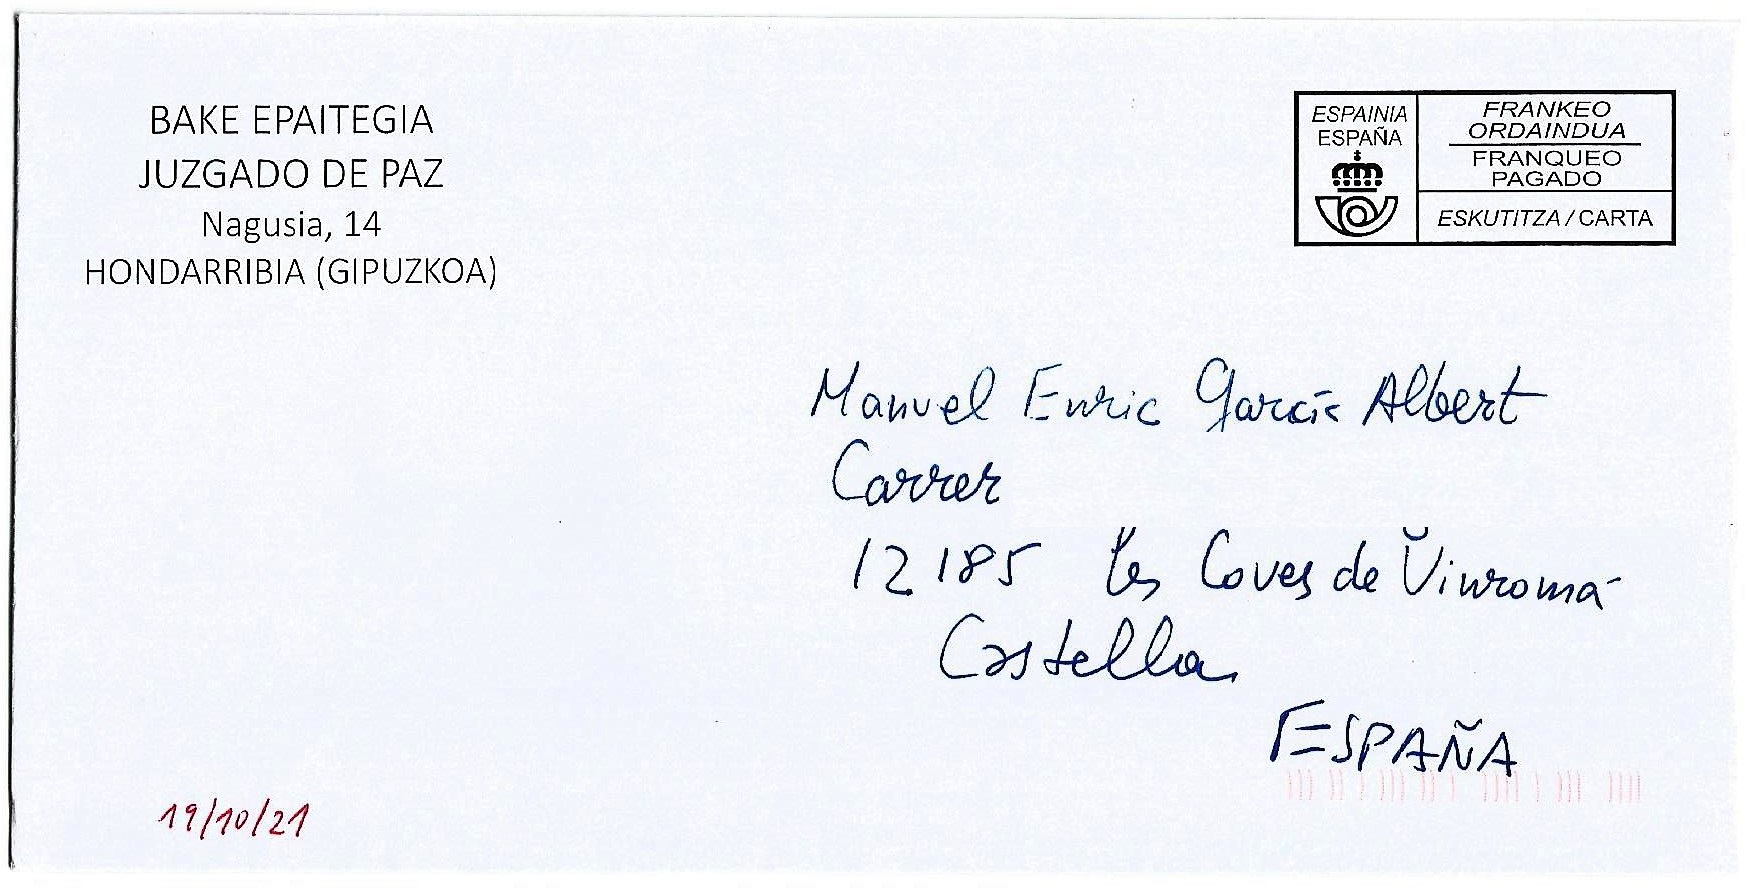 BAKE EPAITEGIA
JUZGADO DE PAZ
Nagusia, 14
HONDARRIBIA (GIPUZKOA)
ESPAINIA
ESPAÑA
FRANKEO
ORDAINDUA
FRANQUEO
PAGADO
ESKUTITZA / CARTA
Manuel Enric García Albert
Carrer
12185 Les Coves de Vinromá
Castella
ESPAÑA
19/10/21